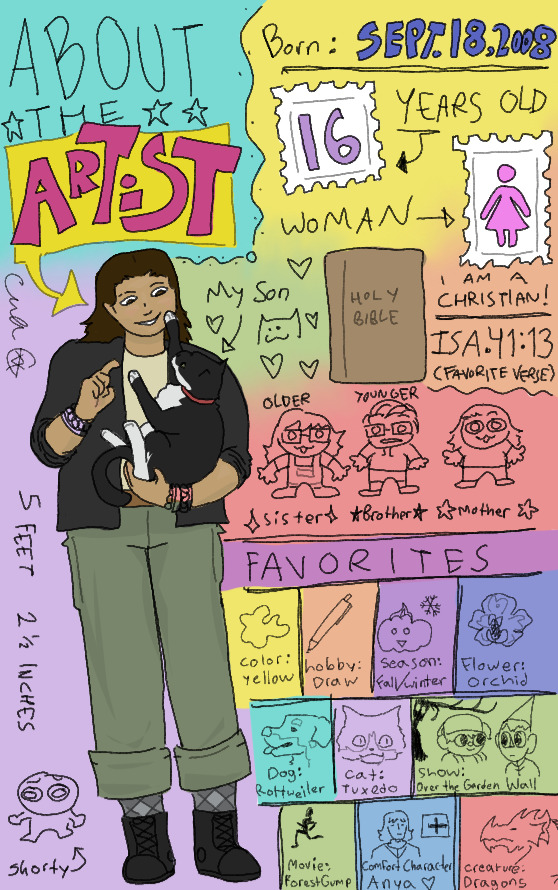 ABOUT
THE
ARTIST
Born: SEPT.18,2008
16
YEARS OLD
WOMAN
My Son
HOLY
BIBLE
I AM A
CHRISTIAN!
ISA.41:13
(FAVORITE VERSE)
OLDER
YOUNGER
Sister
Brother
Mother
5 FEET 2½ INCHES
Shorty
FAVORITES
color:
Yellow
hobby:
Draw
Season:
Fall/winter
Flower:
Orchid
Dog:
Rottweiler
Cat:
Tuxedo
Show:
Over the Garden Wall
Movie:
Forest Gump
Comfort Character
Anya
creature:
Dragons